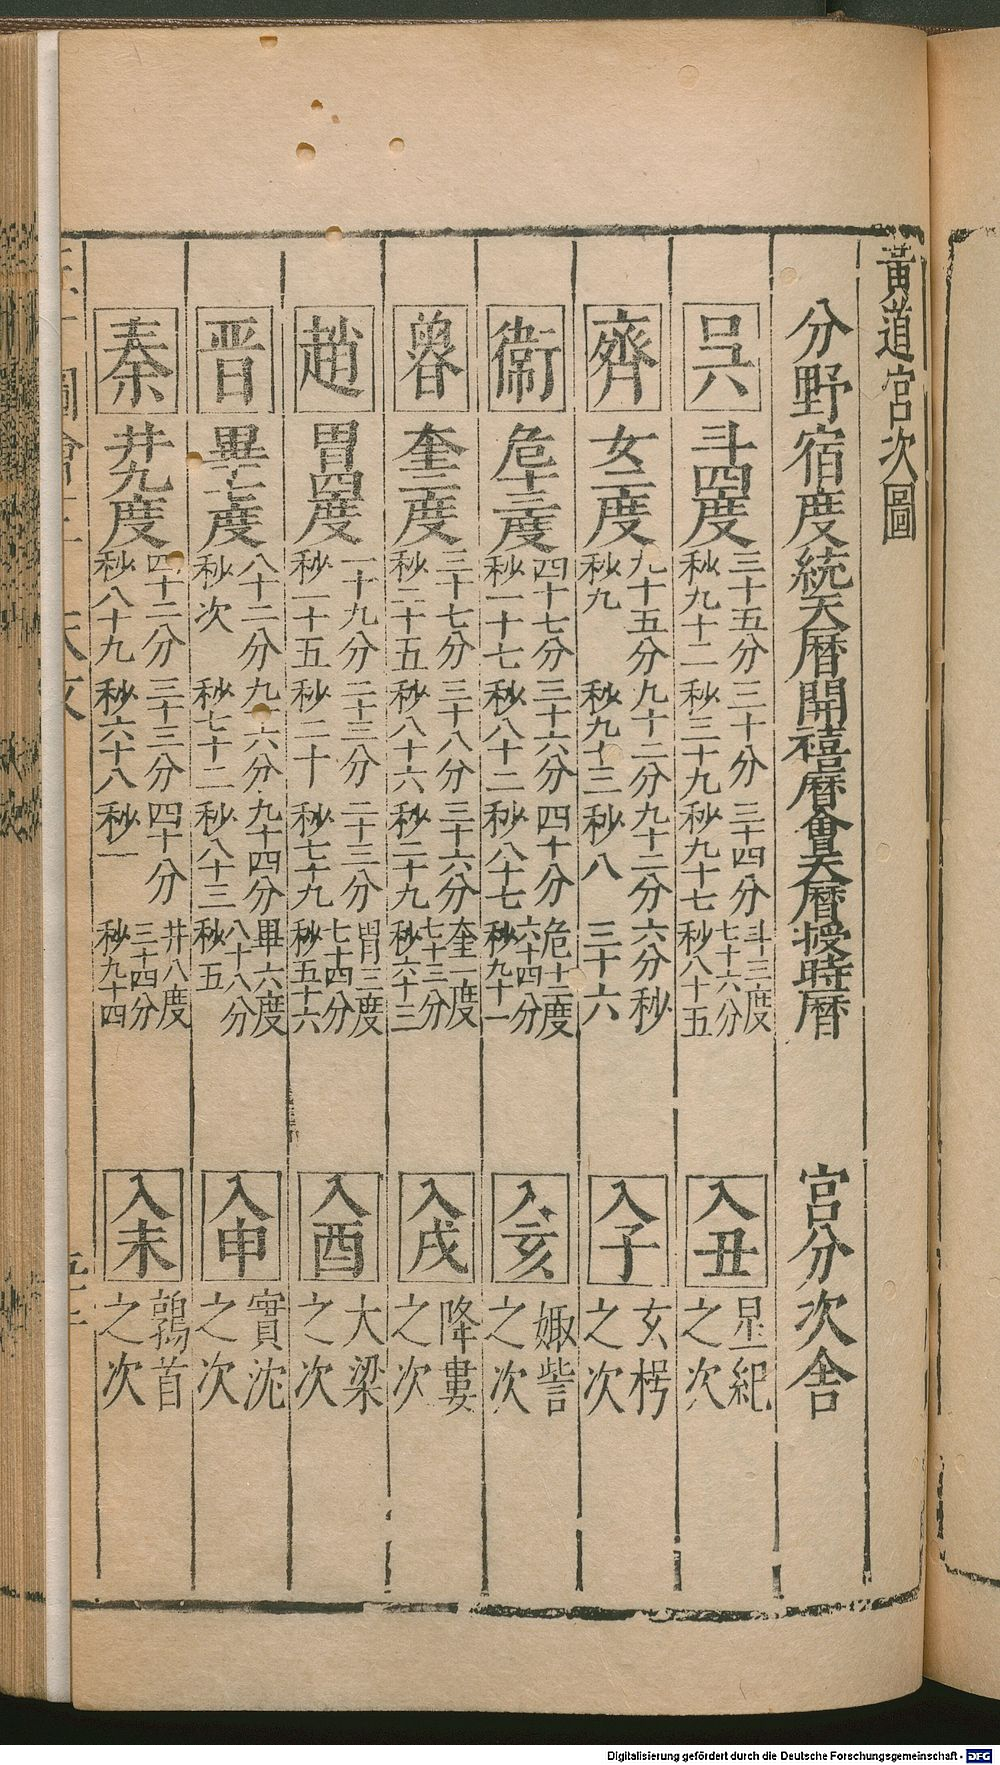 黃道宮次圖
分野宿度統天曆開禧曆會天曆授時曆 宮分次舍
吳 斗四度 三十五分秒九十二 三十分秒三十九 三十四分秒九十七 斗三度七十六分秒八十五 入丑 星紀之次
齊 女二度 九十五分秒九 九十二分秒九十三 九十二分秒八 六分秒三十六 入子 玄枵之次
衛 危十三度 四十七分秒一十七 三十六分秒八十二 四十分秒八十七 危十二度六十四分秒九十一 入亥 娵訾之次
魯 奎三度 三十七分秒二十五 三十八分秒八十六 三十六分秒二十九 奎一度七十三分秒六十三 入戌 降婁之次
趙 胃四度 一十九分秒一十五 二十三分秒二十 二十三分秒七十九 胃三度七十四分秒五十六 入酉 大梁之次
晋 畢七度 八十二分秒次 九十六分秒七十二 九十四分秒八十三 畢六度八十八分秒五 入申 實沈之次
秦 井九度 四十二分秒八十九 三十三分秒六十八 四十分秒一 井八度三十四分秒九十四 入未 鶉首之次
Digitalisierung gefördert durch die Deutsche Forschungsgemeinschaft - DFG